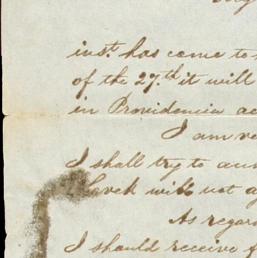 inst. has come to
of the 27.th it will
in Providencia
I am
I shall try to
will not
As regard
I should receive